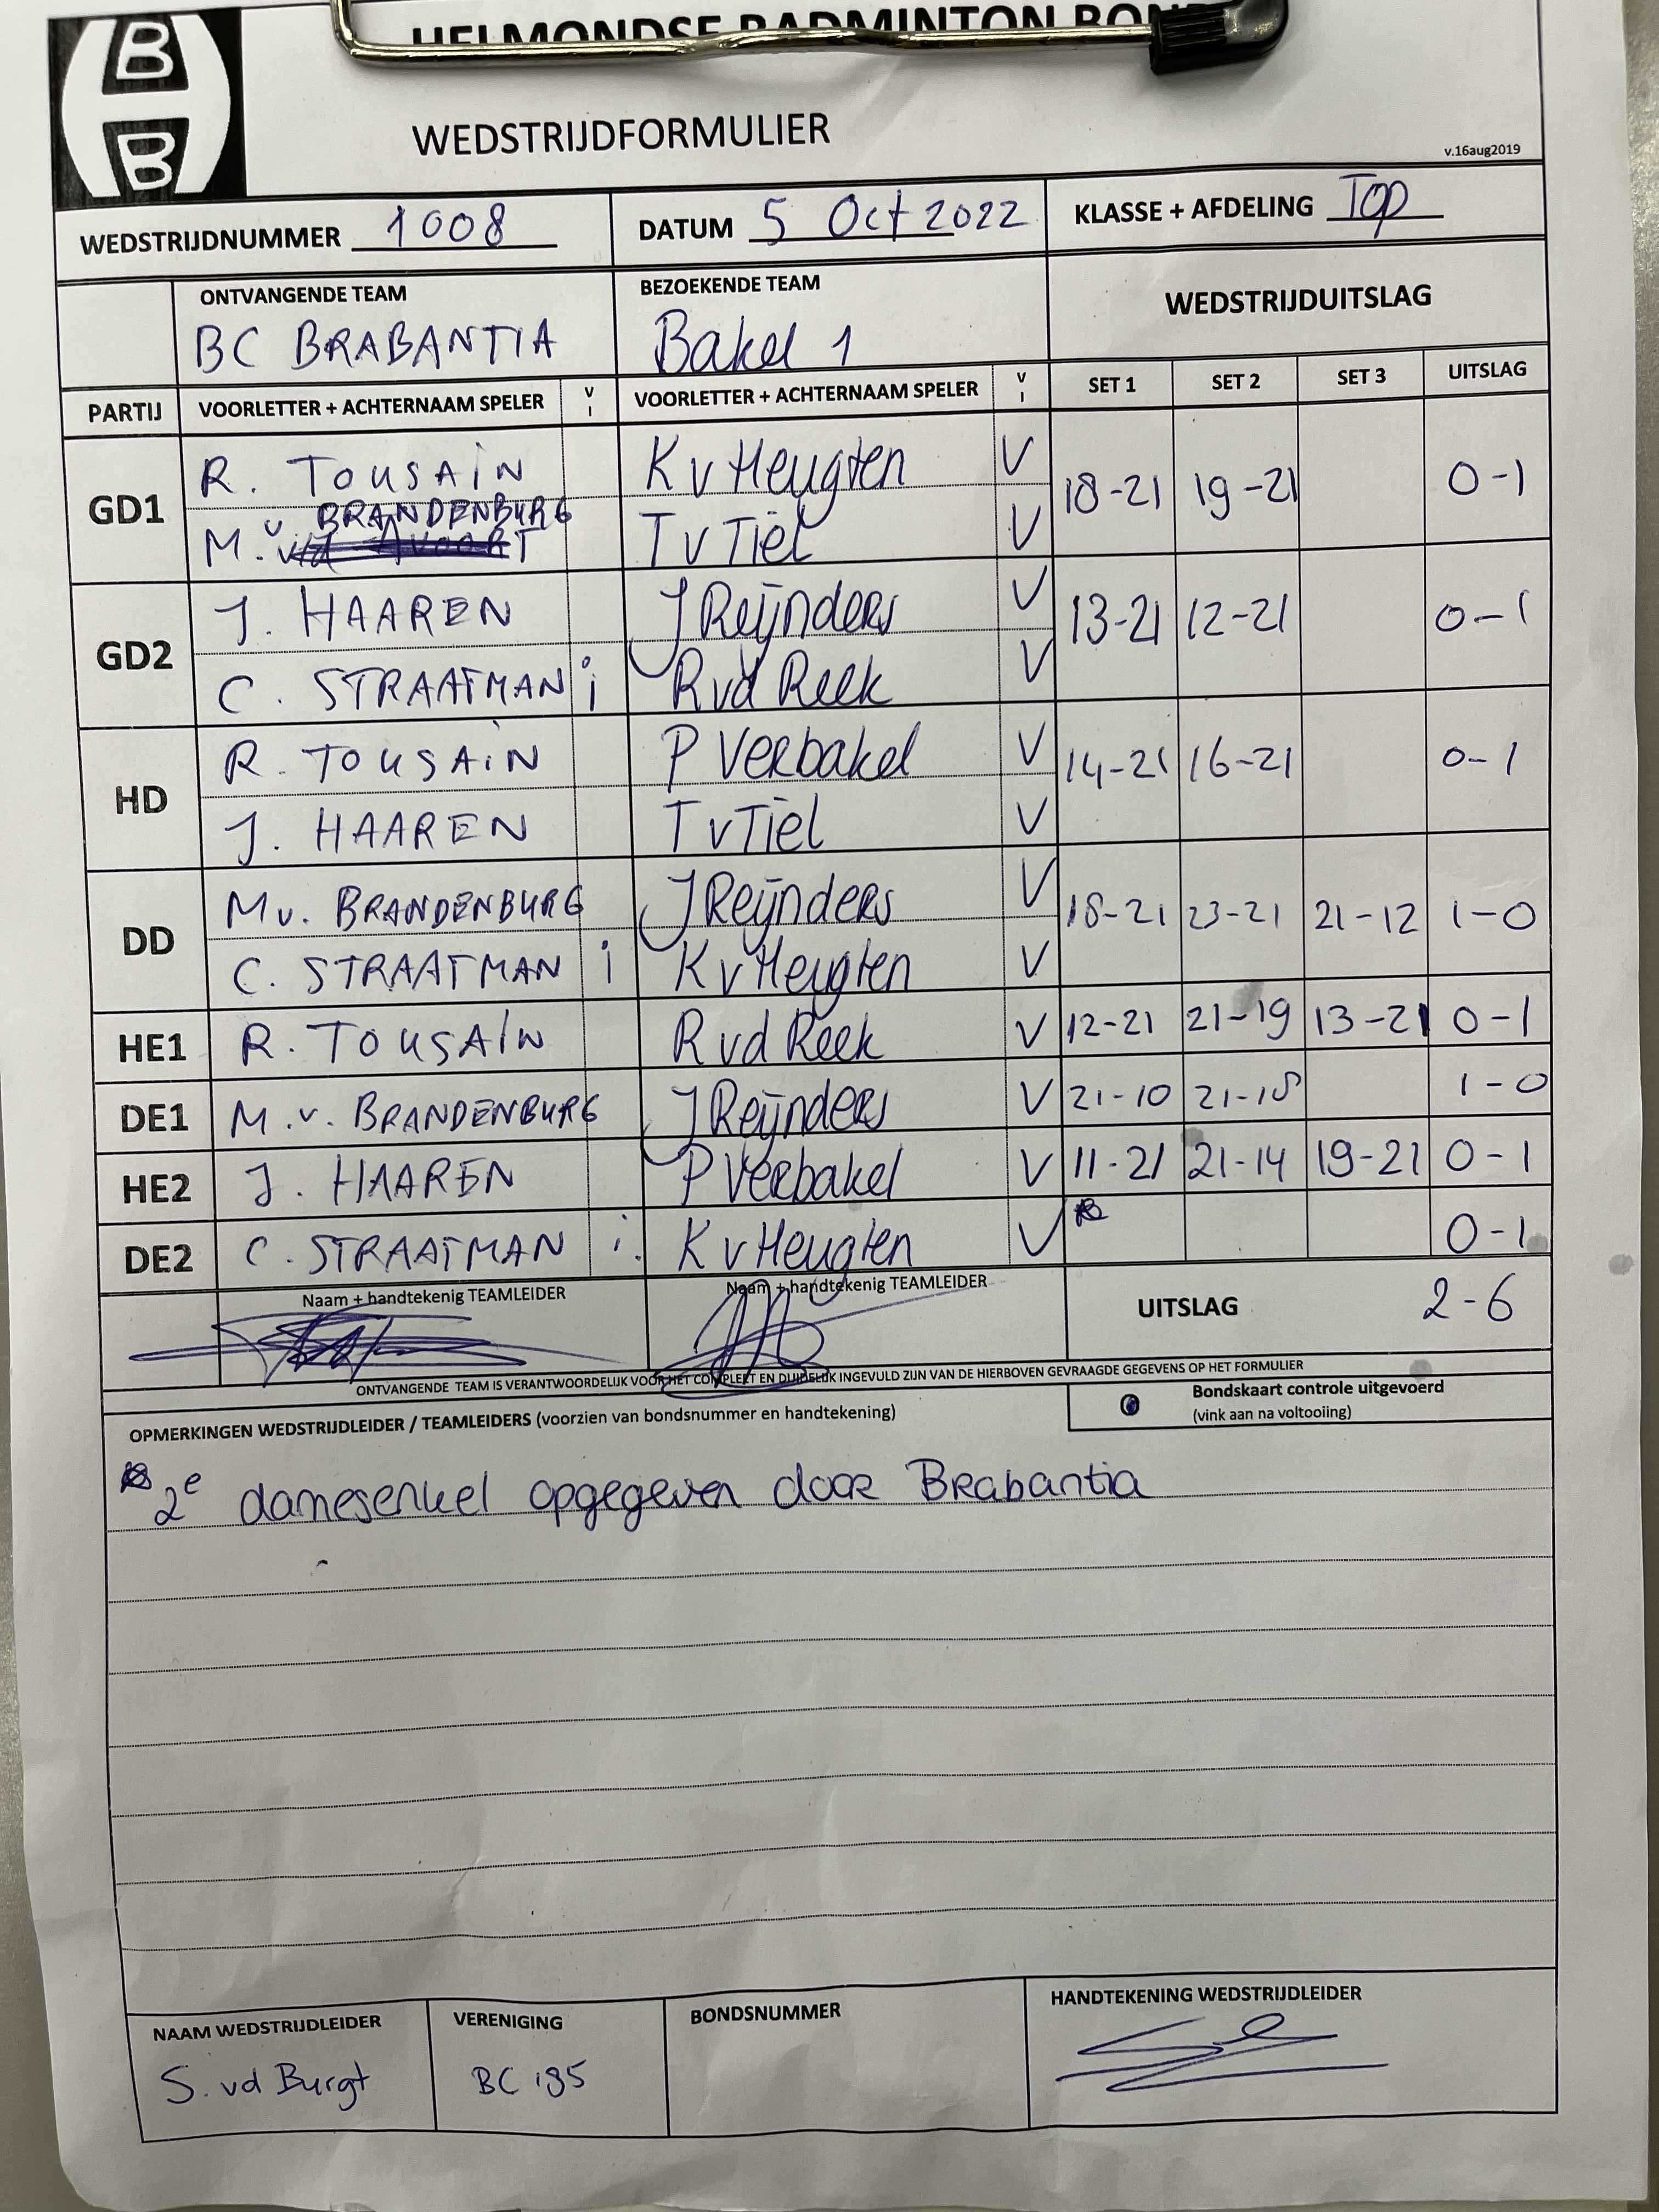 B
B
HELMONDSE BADMINTON BOND
WEDSTRIJDFORMULIER
v.16aug2019
WEDSTRIJDNUMMER 1008 DATUM 5 Oct 2022 KLASSE + AFDELING Top
ONTVANGENDE TEAM BEZOEKENDE TEAM WEDSTRIJDUITSLAG
BC BRABANTIA Bakel 1
PARTIJ VOORLETTER + ACHTERNAAM SPELER V I VOORLETTER + ACHTERNAAM SPELER V I SET 1 SET 2 SET 3 UITSLAG
R. TOUSAIN K v Heugten V
GD1 18-21 19-21 0-1
M. v. BRANDENBURG T v Tiel V
J. HAAREN J Reijnders V
GD2 13-21 12-21 0-1
C. STRAATMAN i R vd Reek V
R. TOUSAIN P Verbakel V
HD 14-21 16-21 0-1
J. HAAREN T v Tiel V
M v. BRANDENBURG J Reijnders V
DD 18-21 23-21 21-12 1-0
C. STRAATMAN i K v Heugten V
HE1 R. TOUSAIN R vd Reek V 12-21 21-19 13-21 0-1
DE1 M. v. BRANDENBURG J Reijnders V 21-10 21-18 1-0
HE2 J. HAAREN P Verbakel V 11-21 21-14 19-21 0-1
DE2 C. STRAATMAN i. K v Heugten V 0-1
Naam + handtekenig TEAMLEIDER Naam + handtekenig TEAMLEIDER UITSLAG 2-6
ONTVANGENDE TEAM IS VERANTWOORDELIJK VOOR HET COMPLEET EN DUIDELIJK INGEVULD ZIJN VAN DE HIERBOVEN GEVRAAGDE GEGEVENS OP HET FORMULIER
OPMERKINGEN WEDSTRIJDLEIDER / TEAMLEIDERS (voorzien van bondsnummer en handtekening)
Bondskaart controle uitgevoerd
(vink aan na voltooiing)
2e damesenkel opgegeven door Brabantia
NAAM WEDSTRIJDLEIDER VERENIGING BONDSNUMMER HANDTEKENING WEDSTRIJDLEIDER
S. vd Burgt BC